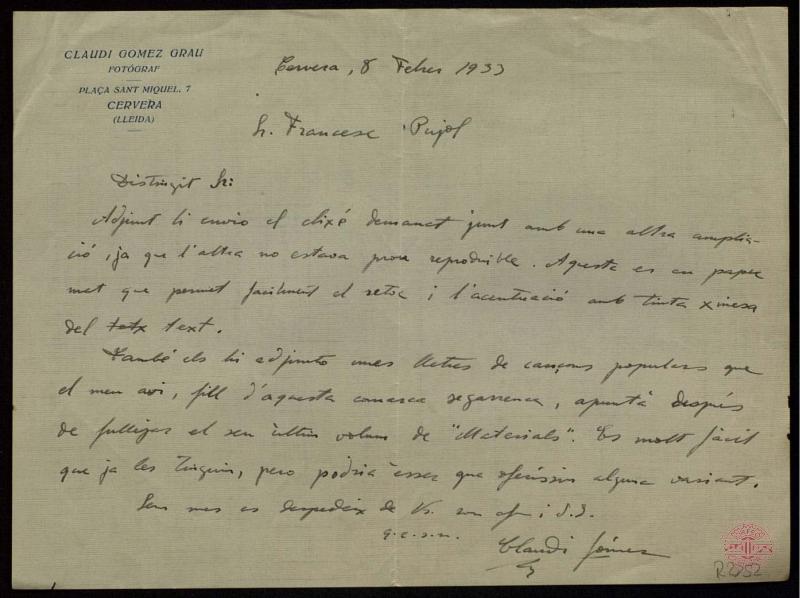 CLAUDI GOMEZ GRAU
FOTÒGRAF
PLAÇA SANT MIQUEL, 7
CERVERA
(LLEIDA)
Cervera, 8 Febrer 1933
Sr. Francesc Pujol
Distingit Sr:
Adjunt li envio el clixé demanat junt amb una altra amplia-
ció, ja que l'altra no estava prou reproduible. Aquesta es en paper
mat que permet facilment el retoc i l'acentuació amb tinta xinesa
del totx text.
També els hi adjunto unes lletres de cançons populars que
el meu avi, fill d'aquesta comarca segarrenca, apuntà després
de fullejar el seu últim volum de "Materials". Es molt fàcil
que ja les tinguin, pero podria ésser que oferissin alguna variant.
Sens mes es despedeix de Vs. son afm i S.S.
q.e.s.m.
Claudi Gómez
R2252